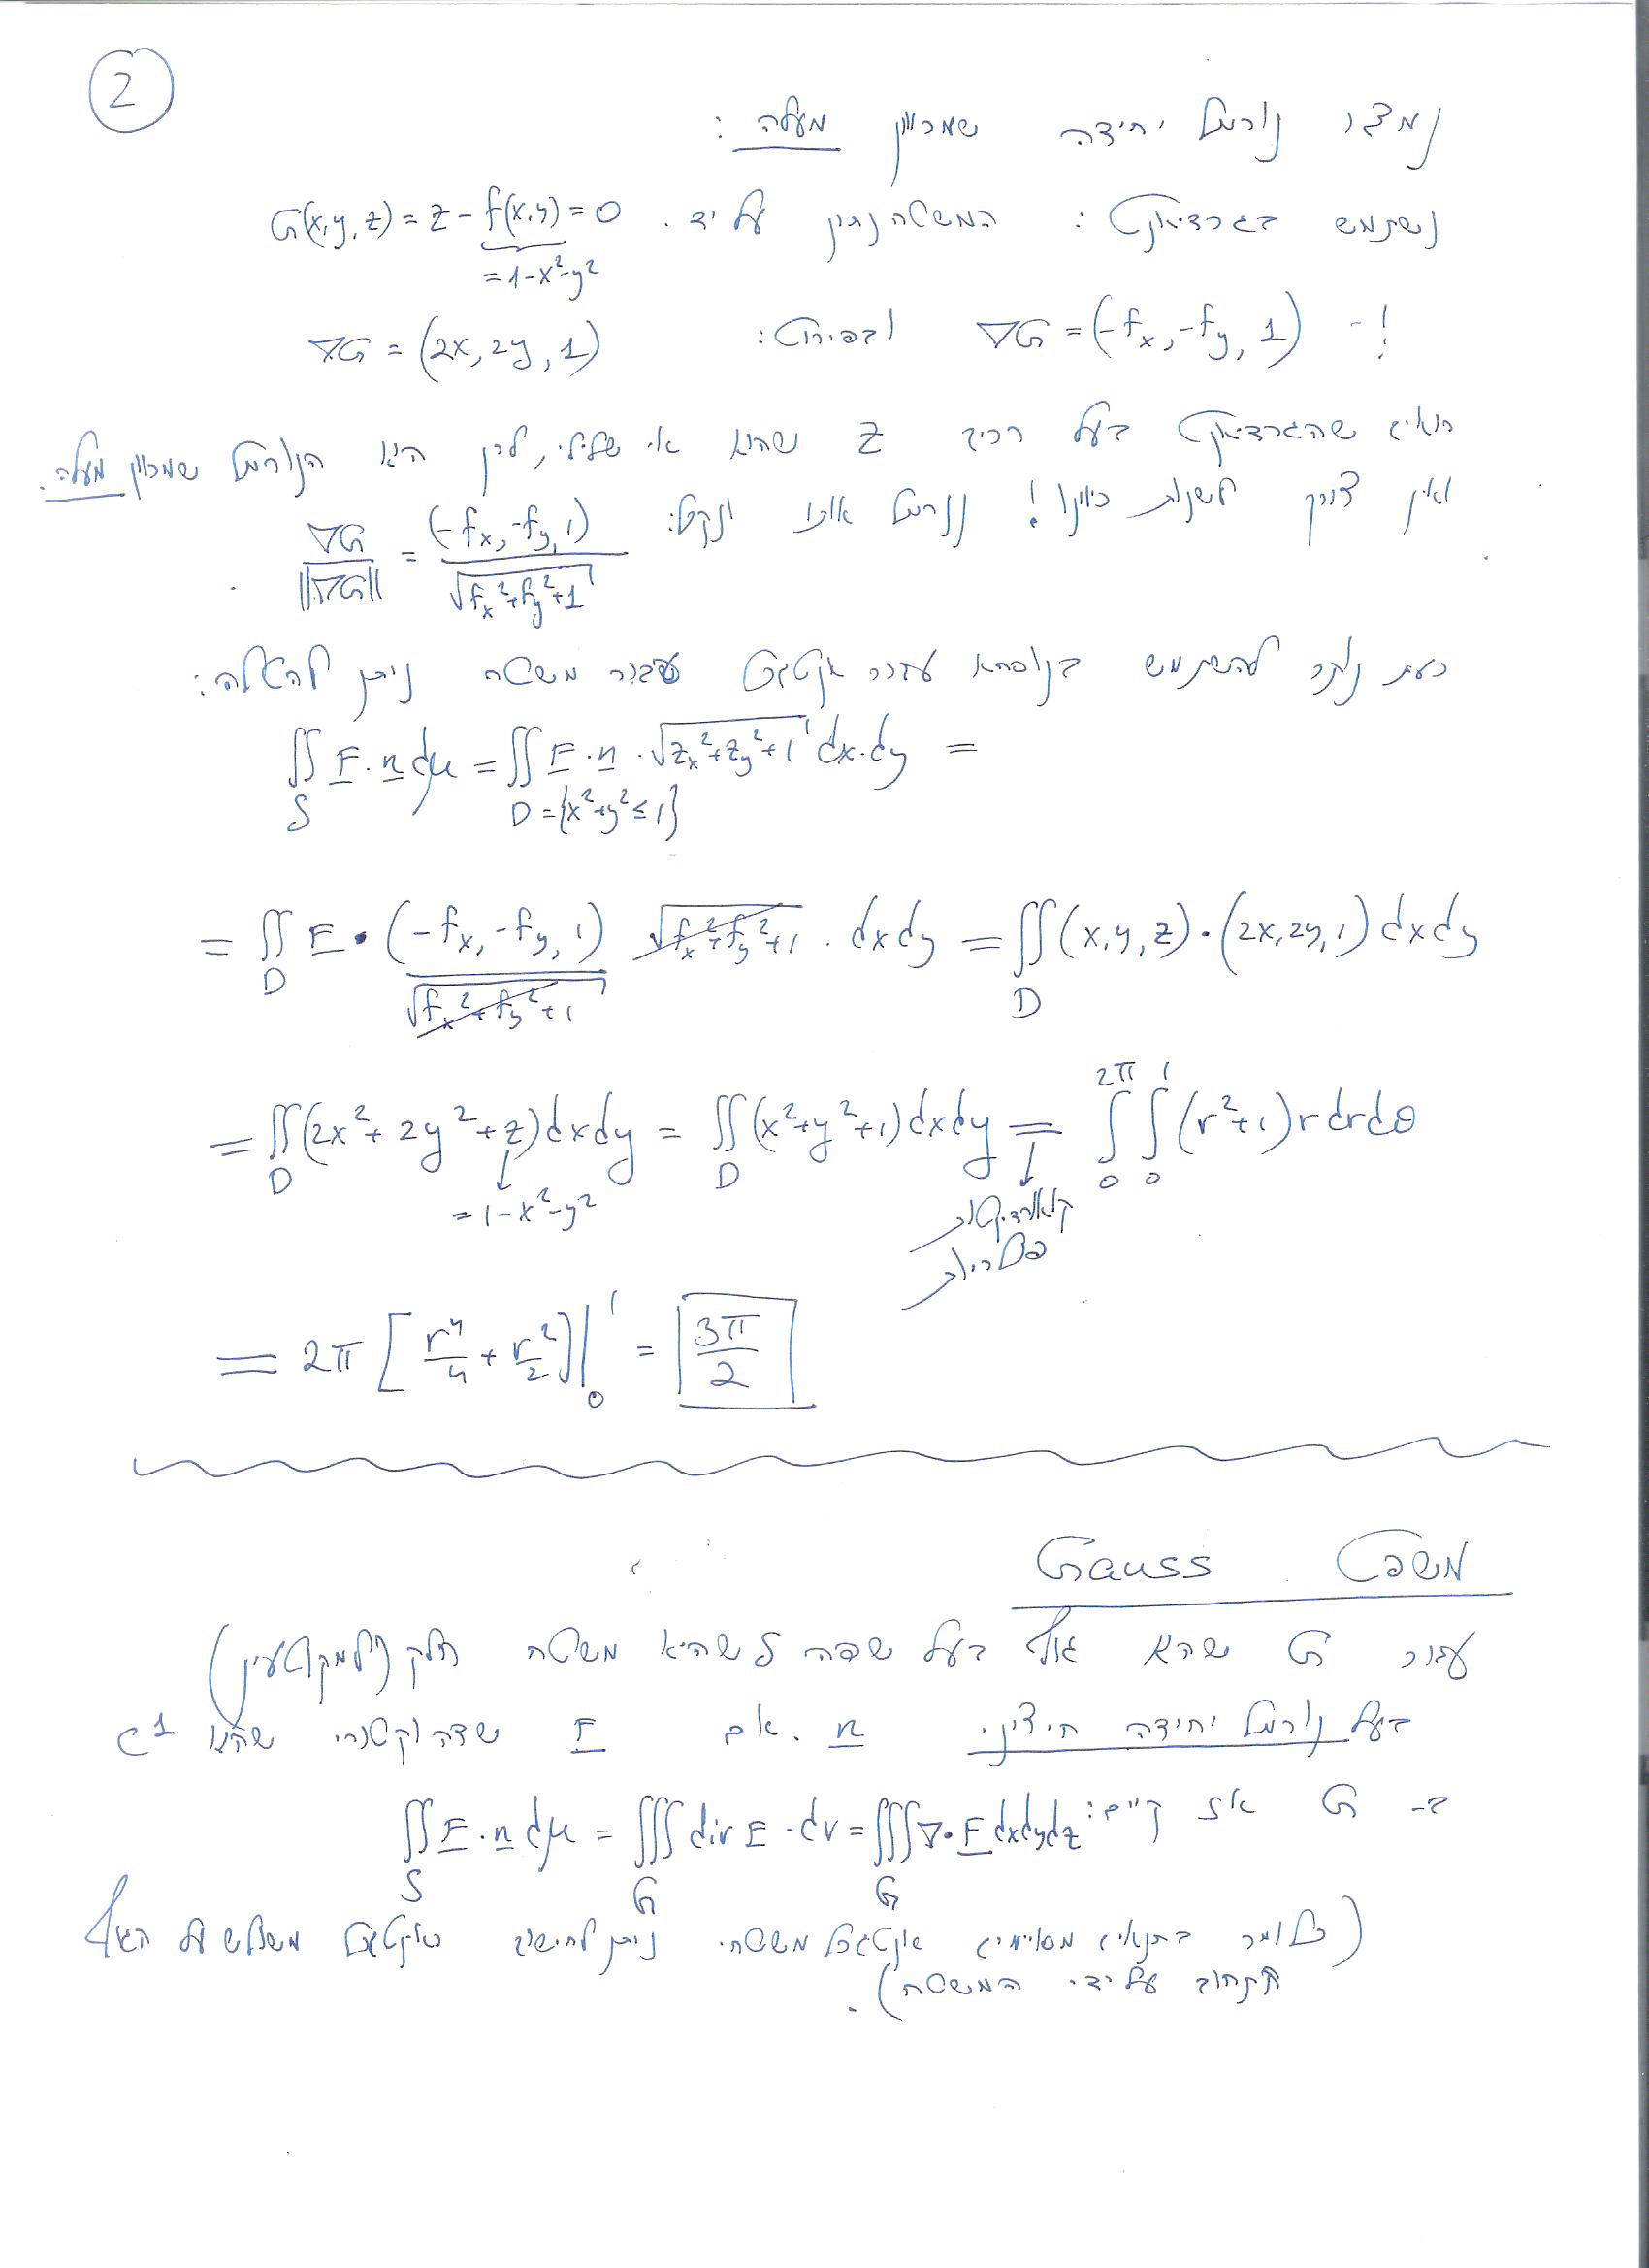 2
נמצא נורמל יחידה שמכוון מעלה :
נשתמש בגרדיאנט : המשטח נתון על יד. G(x,y,z) = z - f(x,y) = 0
= 1-x²-y²
ו- ∇G = (-fx, -fy, 1) ובפירוט: ∇G = (2x, 2y, 1)
רואים שהגרדיאנט בעל רכיב z שהוא אי שלילי, לכן הוא הנורמל שמכוון מעלה.
ואין צורך לשנות כיוון! ננרמל אותו ונקבל: ∇G/||∇G|| = (-fx, -fy, 1)/√(fx²+fy²+1) .
כעת נותר להשתמש בנוסחא עבור אינטגרל עבור משטח ניתן להטלה:
∬_S F·n dμ = ∬_{D={x²+y²≤1}} F·n·√(zx²+zy²+1) dx·dy =
= ∬_D F·(-fx, -fy, 1)/√(fx²+fy²+1) √(fx²+fy²+1) · dxdy = ∬_D (x,y,z)·(2x,2y,1) dxdy
= ∬_D (2x²+2y²+z) dxdy = ∬_D (x²+y²+1) dxdy = ∫_0^{2π} ∫_0^1 (r²+1) r dr dθ
= 1-x²-y²
קואורדינטות
פולריות
= 2π [r⁴/4 + r²/2]|_0^1 = 3π/2
משפט Gauss
עבור G שהוא גוף בעל שפה S שהיא משטח חלק (למקוטעין)
בעל נורמל יחידה חיצוני n. אם F שדה וקטורי שהינו C¹
ב- G אז קיים: ∬_S F·n dμ = ∭_G div F · dv = ∭_G ∇·F dxdydz
(כלומר בתנאים מסויימים אינטגרל משטחי ניתן לחישוב כאינטגרל משולש על הגוף
התחום על ידי המשטח).